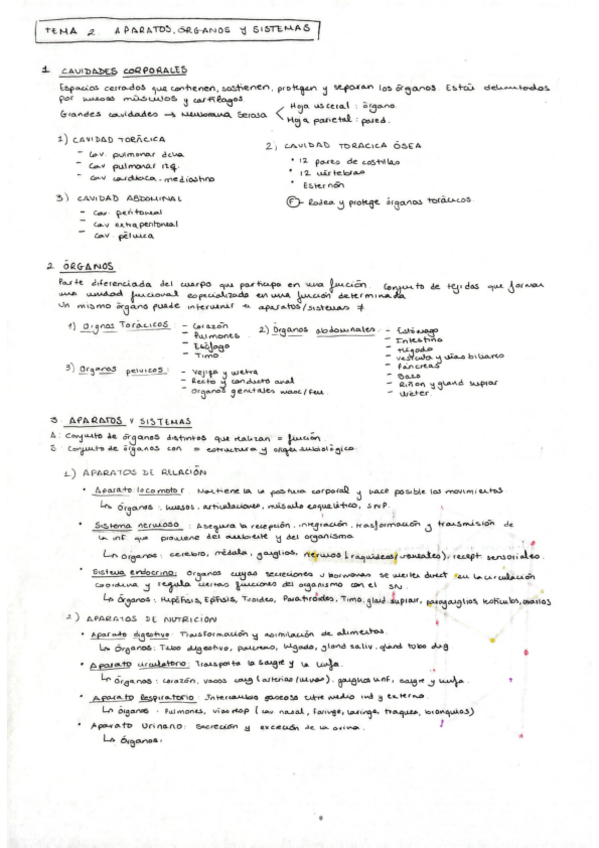 TEMA 2. APARATOS, ÓRGANOS Y SISTEMAS
1 CAVIDADES CORPORALES
Espacios cerrados que contienen, sostienen, protegen y separan los órganos. Están delimitados
por huesos músculos y cartílagos.
Grandes cavidades → Membrana Serosa < Hoja visceral: órgano.
Hoja parietal: pared.
1) CAVIDAD TORÁCICA
- Cav. pulmonar dcha
- Cav pulmonar izq.
- Cav cardíaca - mediastino
2) CAVIDAD TORACICA ÓSEA
• 12 pares de costillas
• 12 vértebras
• Esternón
(F) - Rodea y protege órganos torácicos.
3) CAVIDAD ABDOMINAL
- Cav. peritoneal
- Cav extraperitoneal
- Cav pélvica
2 ÓRGANOS
Parte diferenciada del cuerpo que participa en una función. Conjunto de tejidos que forman
una unidad funcional especializada en una función determinada
Un mismo órgano puede intervenir a aparatos/sistemas ≠
1) Órganos Torácicos
- Corazón
- Pulmones
- Esófago
- Timo
2) Órganos abdominales
- Estómago
- Intestino
- Hígado
- Vesícula y vías biliares
- Páncreas
- Bazo
- Riñon y gland suprar
- Uréter
3) Organos pelvicos:
- Vejiga y uretra
- Recto y conducto anal
- Organos genitales masc/fem.
3 APARATOS Y SISTEMAS
A: Conjunto de órganos distintos que realizan = función.
S: Conjunto de órganos con = estructura y origen embiológico.
1) APARATOS DE RELACIÓN
• Aparato locomotor. Mantiene la postura corporal y hace posible los movimientos
↳ Órganos: huesos, articulaciones, músculo esquelético, SNP.
• Sistema nervioso: Asegura la recepción, integración, trasformación y transmisión de
la inf que proviene del ambiente y del organismo
↳ Organos: cerebro, médula, ganglios, nervios (raquídeos/craneales), recept. sensoriales.
• Sistema endocrino: Organos cuyas secreciones u hormonas se vierten direct en la circulación
coordina y regula ciertas funciones del organismo con el SN.
↳ Órganos: Hipófisis, Epífisis, Tiroides, Paratiroides, Timo, gland suprar, paraganglios testículos, ovarios
2) APARATOS DE NUTRICION
• Aparato digestivo: Transformación y asimilación de alimentos.
↳ Órganos: Tubo digestivo, páncreas, hígado, gland saliv, gland tubo dig
• Aparato circulatorio: Transporta la sangre y la linfa.
↳ Órganos: corazón, vasos sang (arterias/venas), ganglios linf, sangre y linfa.
• Aparato Respiratorio: Intercambio gaseoso entre medio int y externo.
↳ Órganos: Pulmones, vías resp (cav nasal, faringe, laringe, traquea, bronquios)
• Aparato Urinario: Secreción y excreción de la orina.
↳ Órganos: